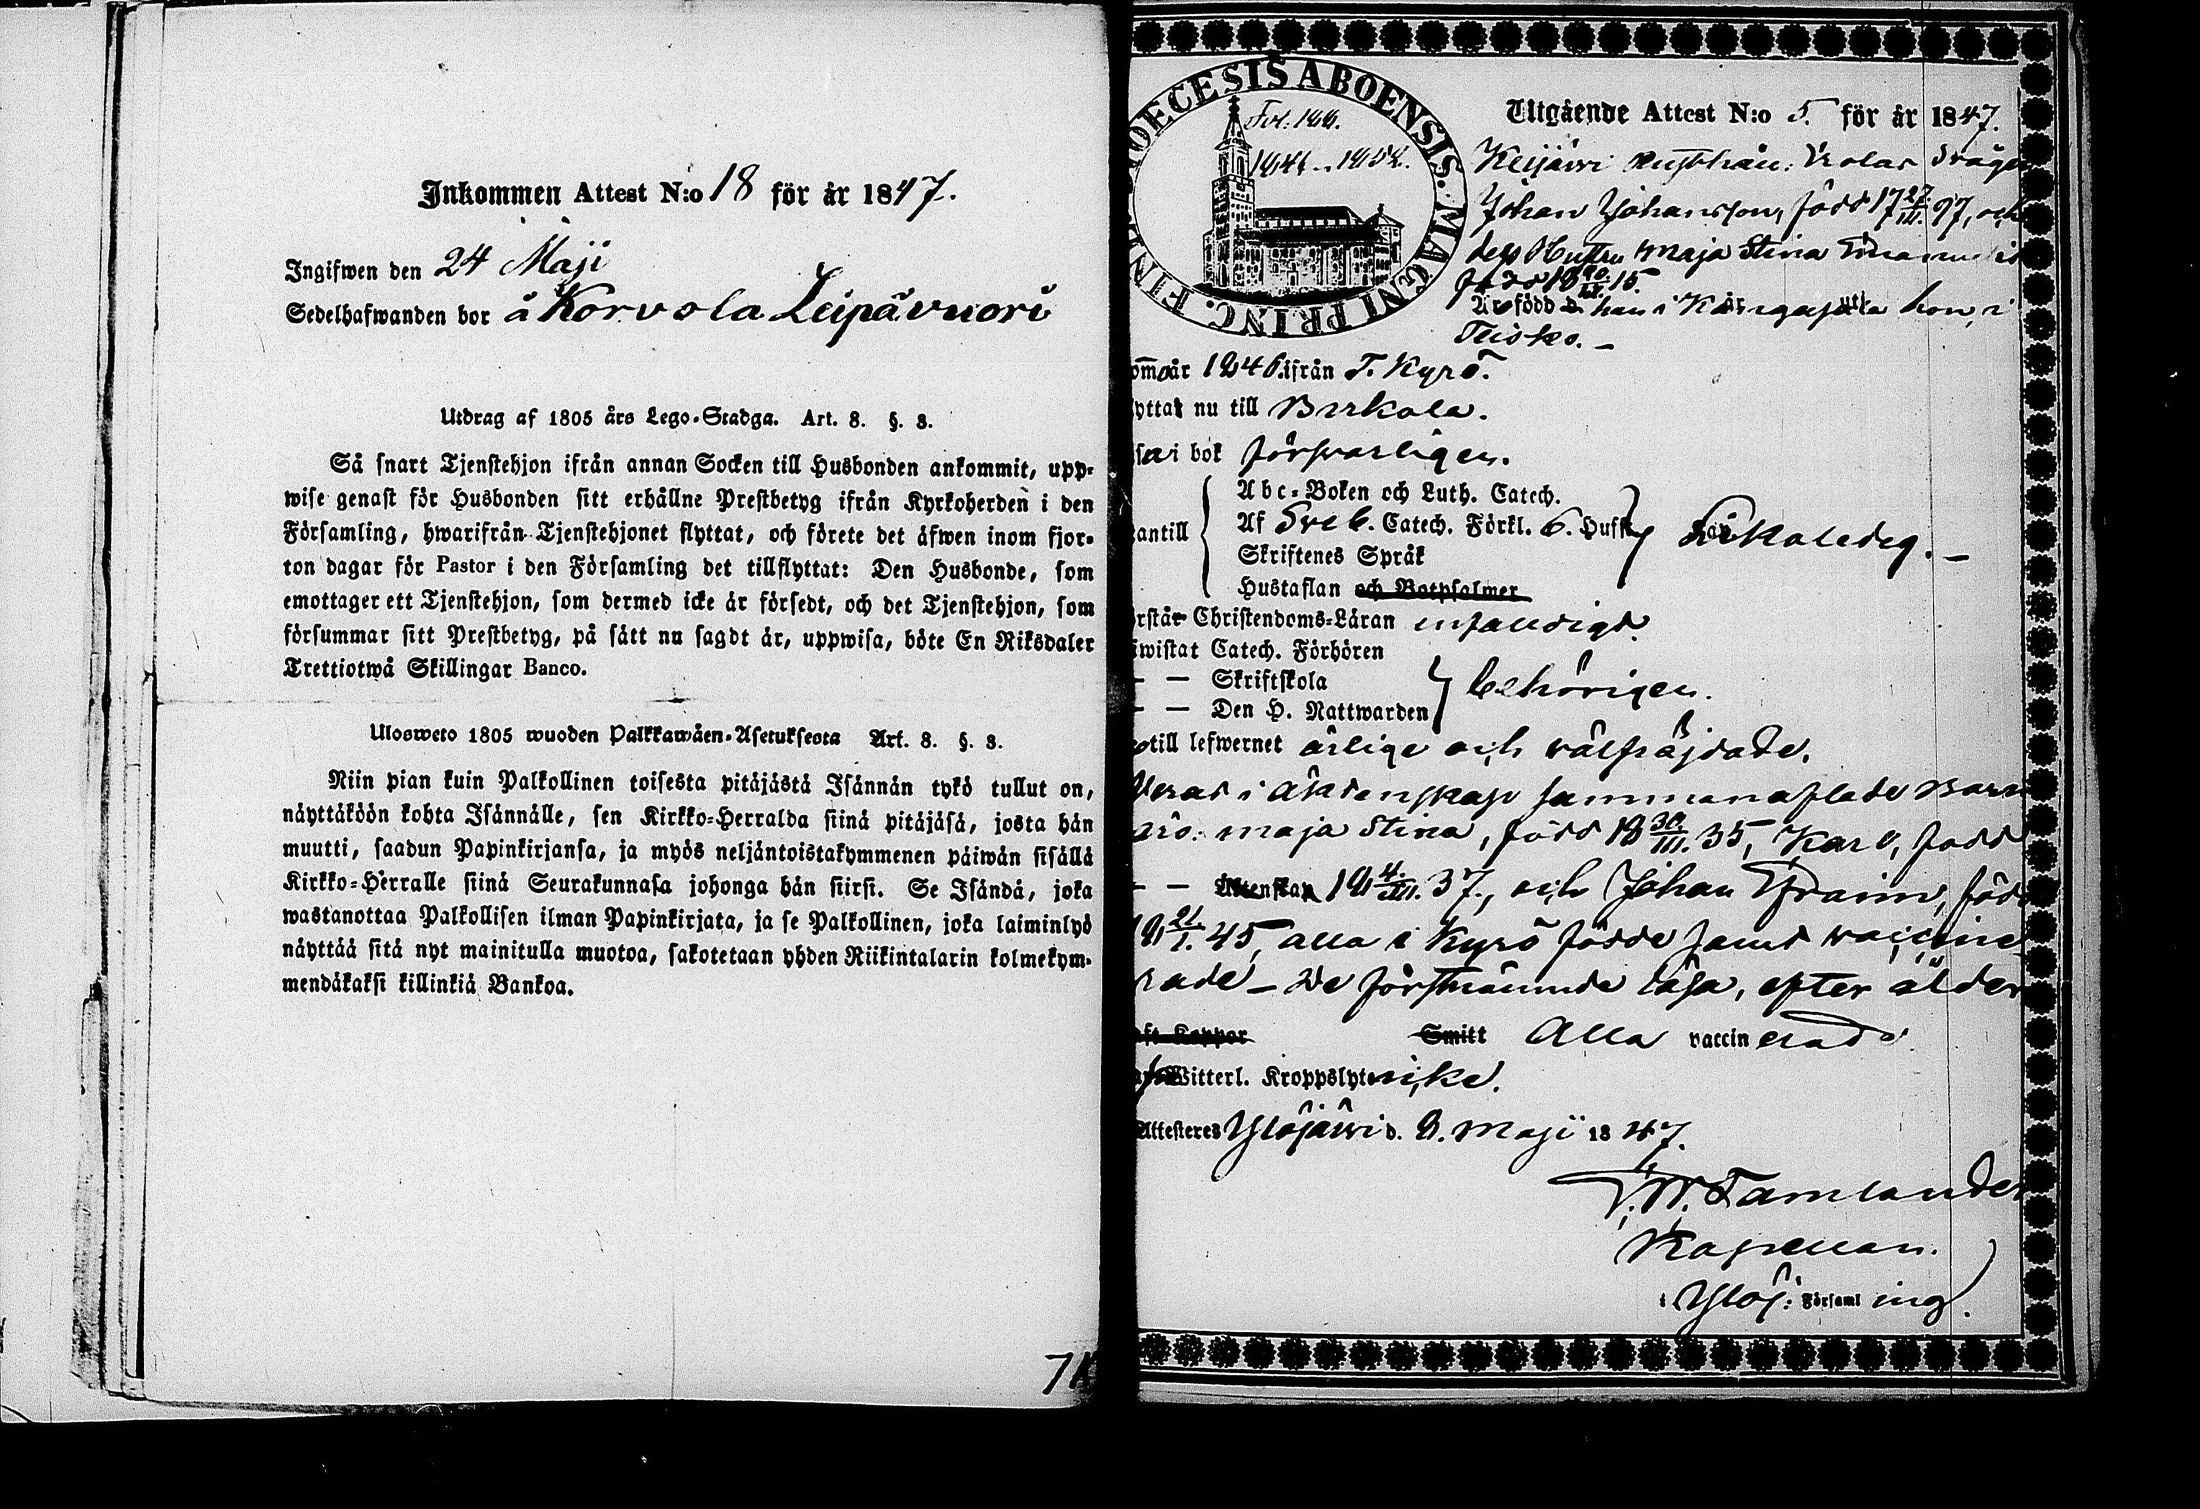 Inkommen Attest N:o 18 för år 1847.
Ingifwen den 24 Maji
Sedelhafwanden bor å Korvola Leipävuori
Utdrag af 1805 års Lego-Stadga. Art. 8. §. 8.
Så snart Tjenstehjon ifrån annan Socken till Husbonden ankommit, upp-
wise genast för Husbonden sitt erhållne Prestbetyg ifrån Kyrkoherden i den
Församling, hwarifrån Tjenstehjonet flyttat, och förete det äfwen inom fjor-
ton dagar för Pastor i den Församling det tillflyttat: Den Husbonde, som
emottager ett Tjenstehjon, som dermed icke är försedt, och det Tjenstehjon, som
försummar sitt Prestbetyg, på sätt nu sagdt är, uppwisa, böte En Riksdaler
Trettiotwå Skillingar Banco.
Ulosweto 1805 wuoden Palkkawäen-Asetuksesta Art. 8. §. 8.
Niin pian kuin Palkollinen toisesta pitäjästä Isännän tykö tullut on,
näyttäköön kohta Isännälle, sen Kirkko-Herralda siinä pitäjäsä, josta hän
muutti, saadun Papinkirjansa, ja myös neljäntoistakymmenen päiwän sisällä
Kirkko-Herralle siinä Seurakunnasa johonga hän siirsi. Se Isändä, joka
wastanottaa Palkollisen ilman Papinkirjata, ja se Palkollinen, joka laiminlyö
näyttää sitä nyt mainitulla muotoa, sakotetaan yhden Riikintalarin kolmekym-
mendäkaksi killinkiä Bankoa.
DIOECESIS ABOENSIS. MAGNI PRINC. FINL
Fol: 166.
Utgående Attest N:o 5. för år 1847.
Keijärvi
Johan Johansson, född 17 27/III. 97, och
dess Hustru Maja Stina
född 18 15.
Äro född han i Kangasala hon i
Teisko. —
omo år 1846 ifrån T. Kyrö.
yttat nu till Birkala.
sa i bok försvarligen.
Abc-Boken och Luth. Catech.
antill Af Sveb. Catech. Förkl. 6. Hufst
Skriftenes Språk
Hustaflan och Botpsalmer
rstår Christendoms-Läran enfaldigt.
iwistat Catech. Förhören
— — Skriftskola behörigen.
— — Den H. Nattwarden
till lefwernet ärlige och välfräjdade.
Deras i äktenskap sammanaflade Barn
äro: Maja Stina, född 18 30/III. 35, Karl, född
— — Äktenskap 18 4/III. 37, och Johan Efraim, född
18 21/I. 45, alla i Kyrö födde samt vaccine
rade — De förstnämnda läsa, efter ålder
aft Koppor Smitt Alla vaccinerade
Witterl. Kroppslyte icke.
Attesteres Ylöjärvi d. 8. Maji 1847.
Tamlander
Kapellan.
i Ylöj: Församling.